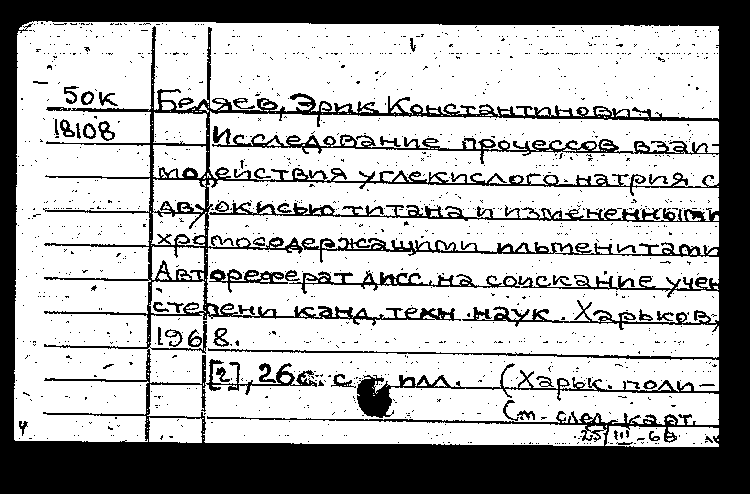 50К Беляев, Эрик Константинович.
18108 Исследование процессов взаи-
модействия углекислого натрия с
двуокисью титана и измененными
хромосодержащими ильменитами
Автореферат дисс. на соискание учен
степени канд. техн. наук. Харьков,
1968.
[2], 26с. с илл. (Харьк. поли-
(см. след. карт.
4 25/III-68